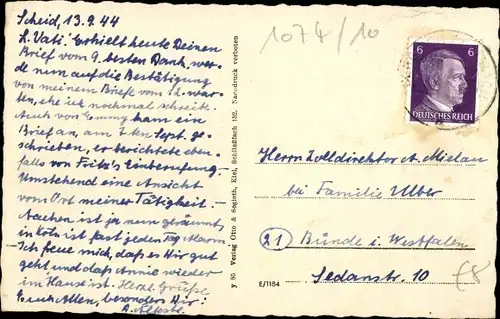 Scheid, 13.9.44
L. Vati! Erhielt heute Deinen
Brief vom 9. besten Dank, wer-
de nun auf die Bestätigung
von meinem Briefe vom 12. war-
ten, ehe ich nochmal schreib.
Auch von Emmy kam ein
Brief an, am 7ten Sept. ge-
schrieben, er berichtete eben-
falls von Fritz's Einberufung.
Umstehend eine Ansicht
vom Ort meiner Tätigkeit.-
Aachen ist ja nun geräumt,
in Köln ist fast jeden Tag Alarm.
- Ich freue mich, daß es Hir gut
geht und daß Annie wieder
im Hause ist. Herzl. Grüße
Euch Allen, besonders Hir:
y 95 Verlag Otto & Sogieth, Kiel, Schließfach 182. Nachdruck verboten
E/1184
1074/10
6 6
DEUTSCHES REICH
Herrn Zolldirektor A. Mielau
bei Familie Ulber
21 Bünde i. Westfalen
Sedanstr. 10
£8